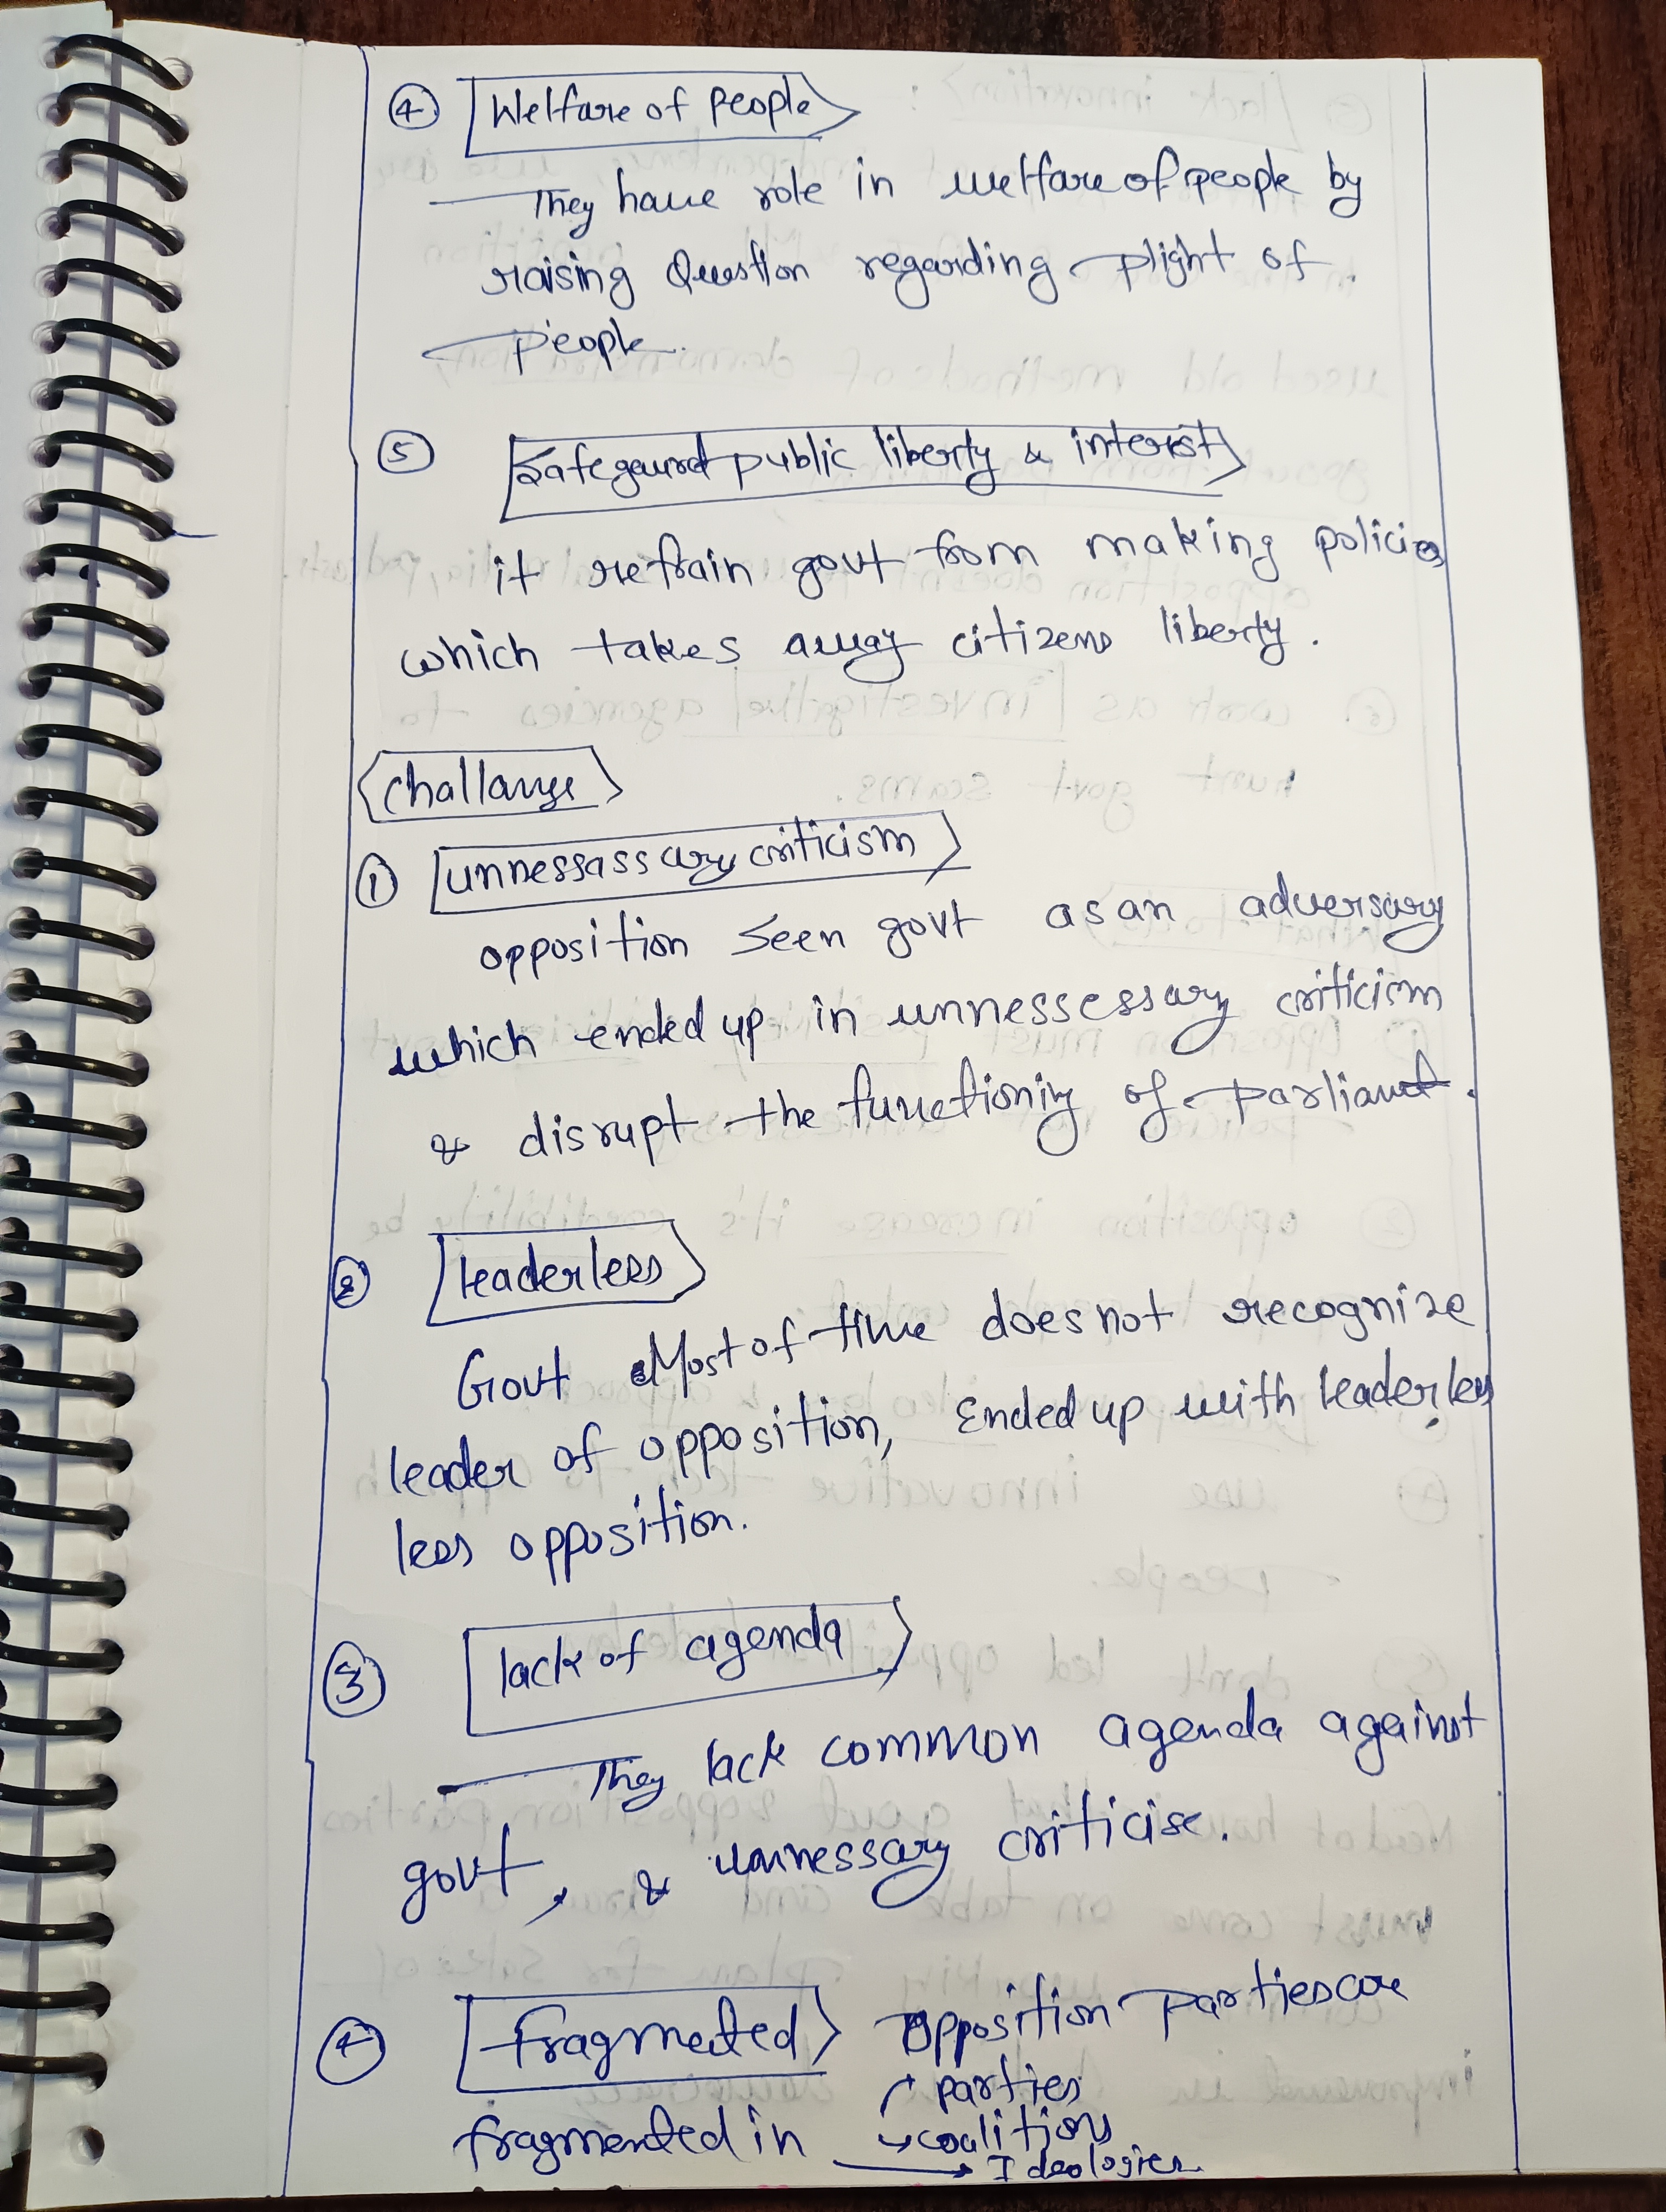 ④ Welfare of people
They have role in welfare of people by
raising Question regarding plight of
people.
⑤ Safegaurd public liberty & interest
it refrain govt from making policies
which takes away citizens liberty.
Challange
① unnessassary criticism
opposition seen govt as an adversary
which ended up in unnessessary criticism
& disrupt the functioning of parliamet.
② leaderless
Govt Most of time does not recognize
leader of opposition, Ended up with leaderles
less opposition.
③ lack of agenda
They lack common agenda against
govt, & unnessary criticise.
④ fragmented opposition parties are
parties
fragmented in coalitions
Ideologies